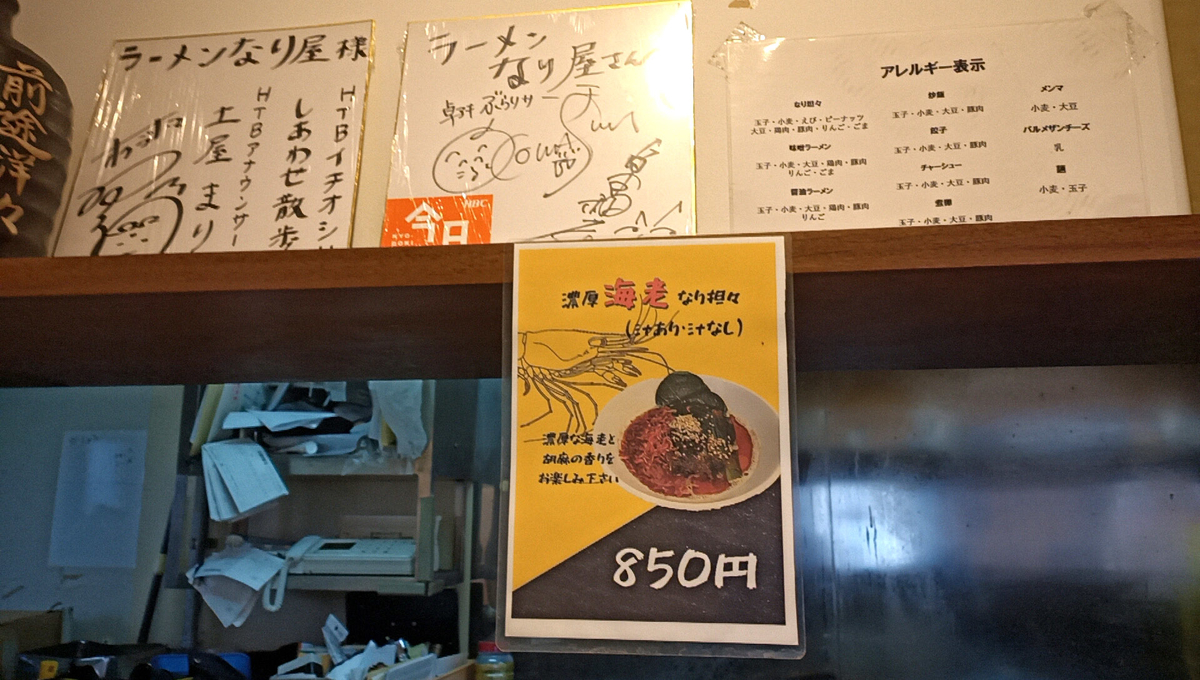 前途洋々
ラーメンなり屋様
HTBイチオシ
しあわせ散歩
HTBアナウンサー
土屋まり
ラーメン
なり屋さん
卓軒ぶらりサー
HBC
今日
アレルギー表示
なり担々
玉子・小麦・えび・ピーナッツ
大豆・鶏肉・豚肉・りんご・ごま
味噌ラーメン
玉子・小麦・大豆・鶏肉・豚肉
りんご・ごま
醤油ラーメン
玉子・小麦・大豆・鶏肉・豚肉
りんご
炒飯
玉子・小麦・大豆・豚肉
餃子
玉子・小麦・大豆・豚肉
チャーシュー
玉子・小麦・大豆・豚肉
煮卵
玉子・小麦・大豆・豚肉
メンマ
小麦・大豆
パルメザンチーズ
乳
麺
小麦・玉子
濃厚海老なり担々
(汁あり・汁なし)
濃厚な海老と
胡麻の香りを
お楽しみ下さい
850円